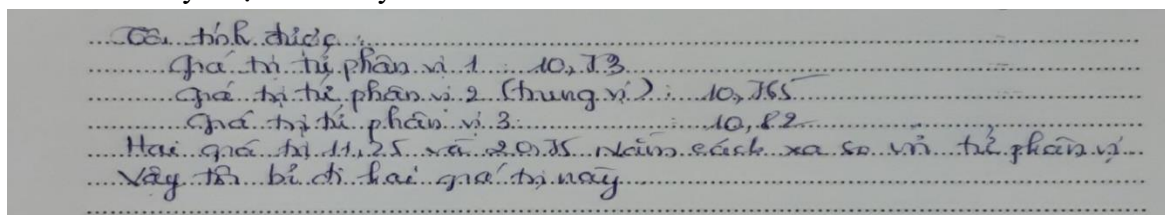 Ta tính được :
Giá trị tứ phân vị 1 : 10,73
Giá trị tứ phân vị 2 (trung vị) : 10,765
Giá trị tứ phân vị 3 : 10,82
Hai giá trị 11,25 và 20,75 nằm cách xa so với tứ phân vị
Vậy ta bỏ đi hai giá trị này